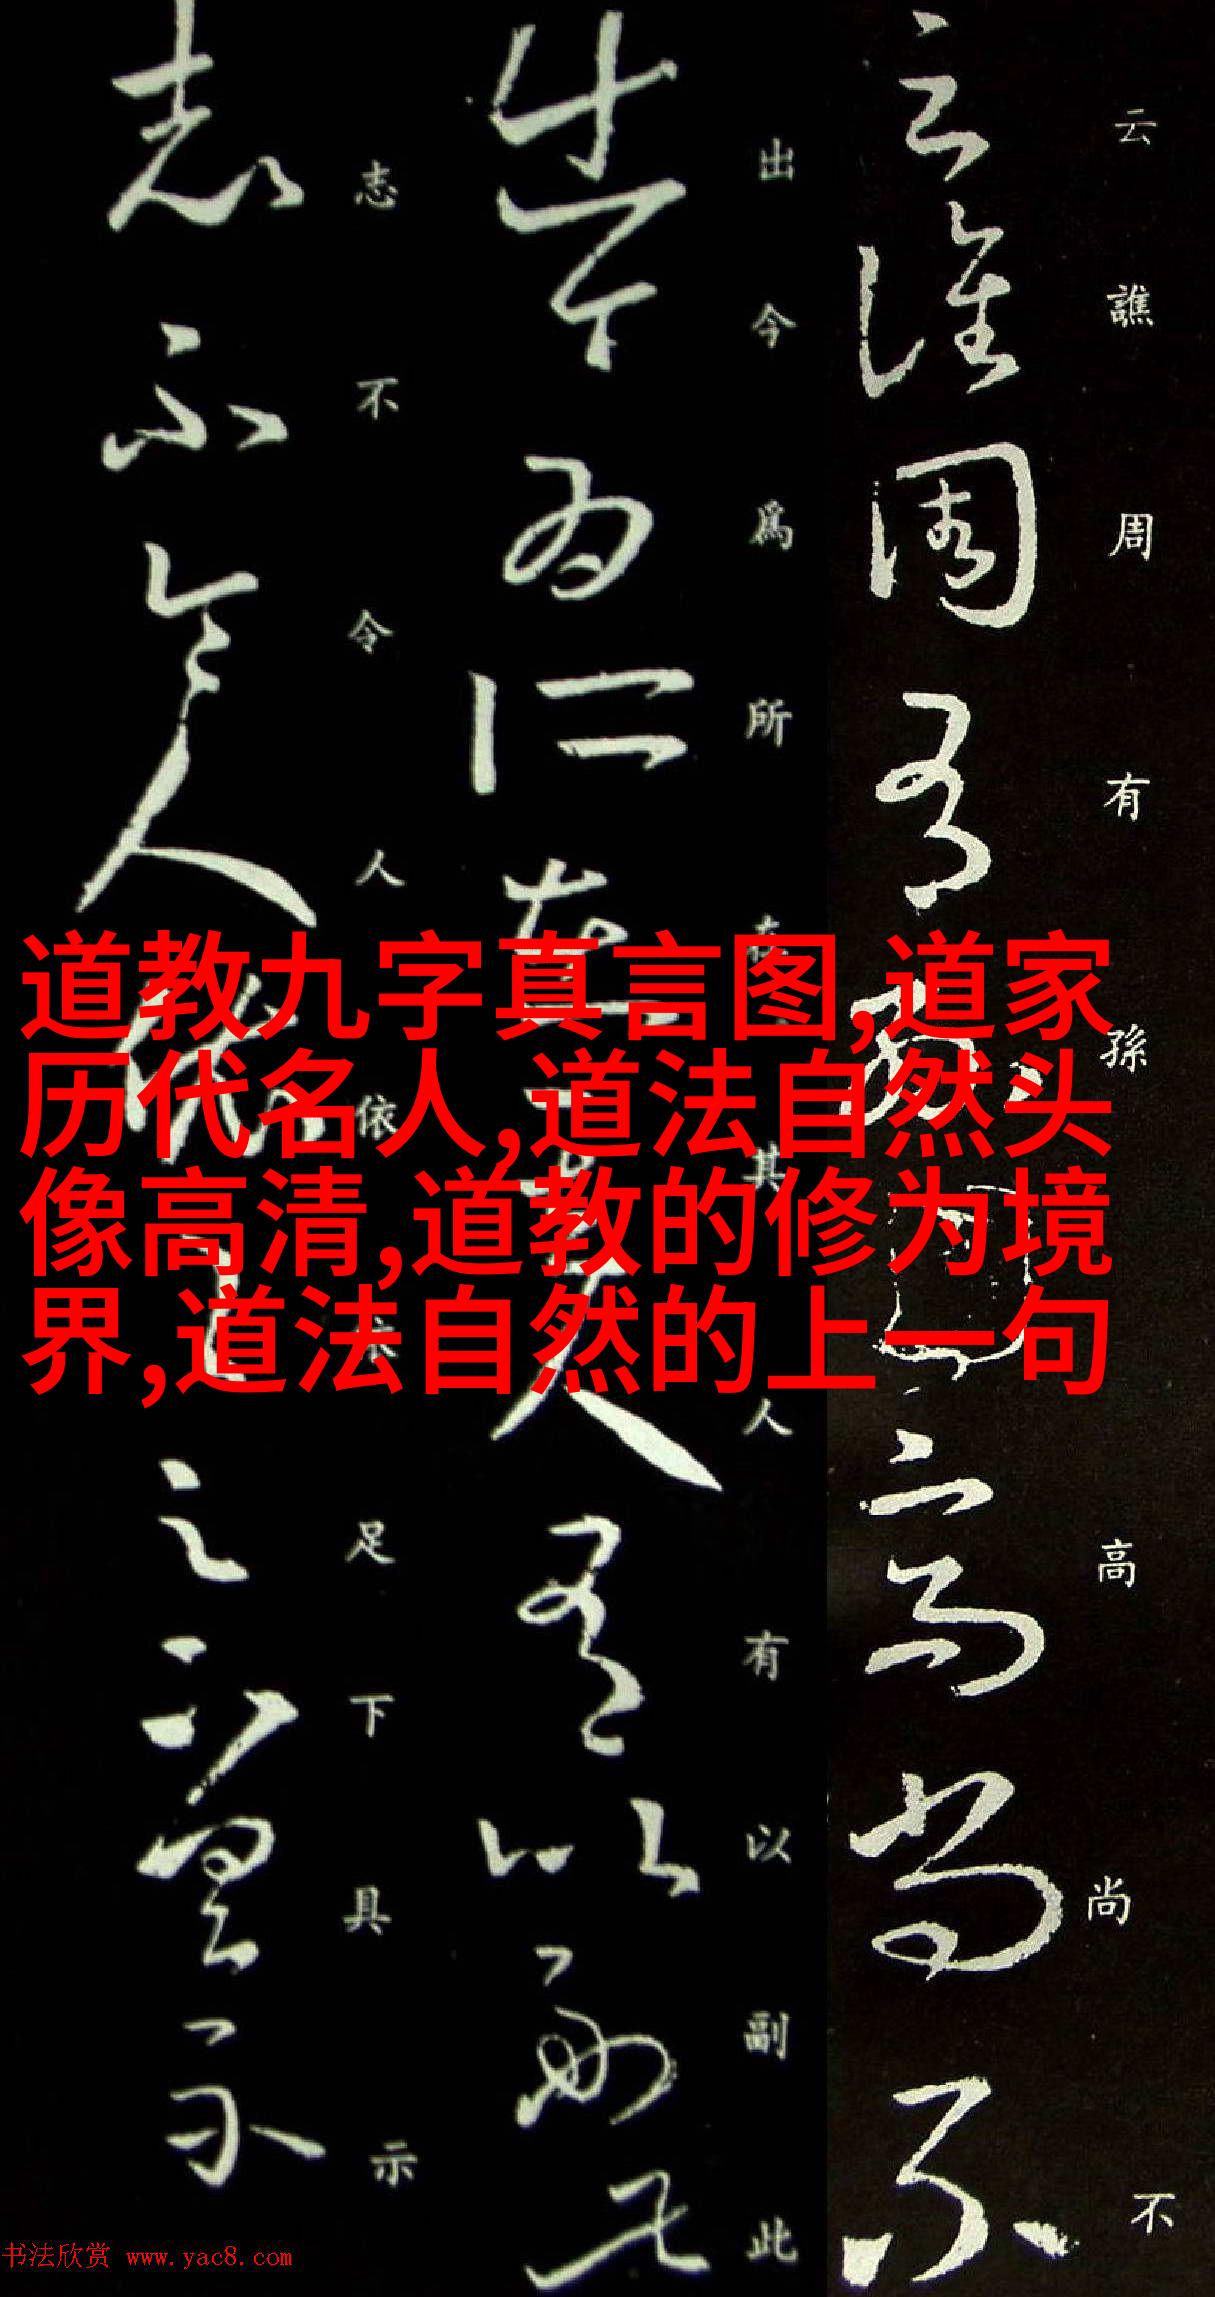 云譙周有孫高尚不
出今爲所在其人有以副此
志不令人依依足下具示
道教九字真言图,道家
历代名人,道法自然头
像高清,道教的修为境
界,道法自然的上一句
书法欣赏 www.yac8.com